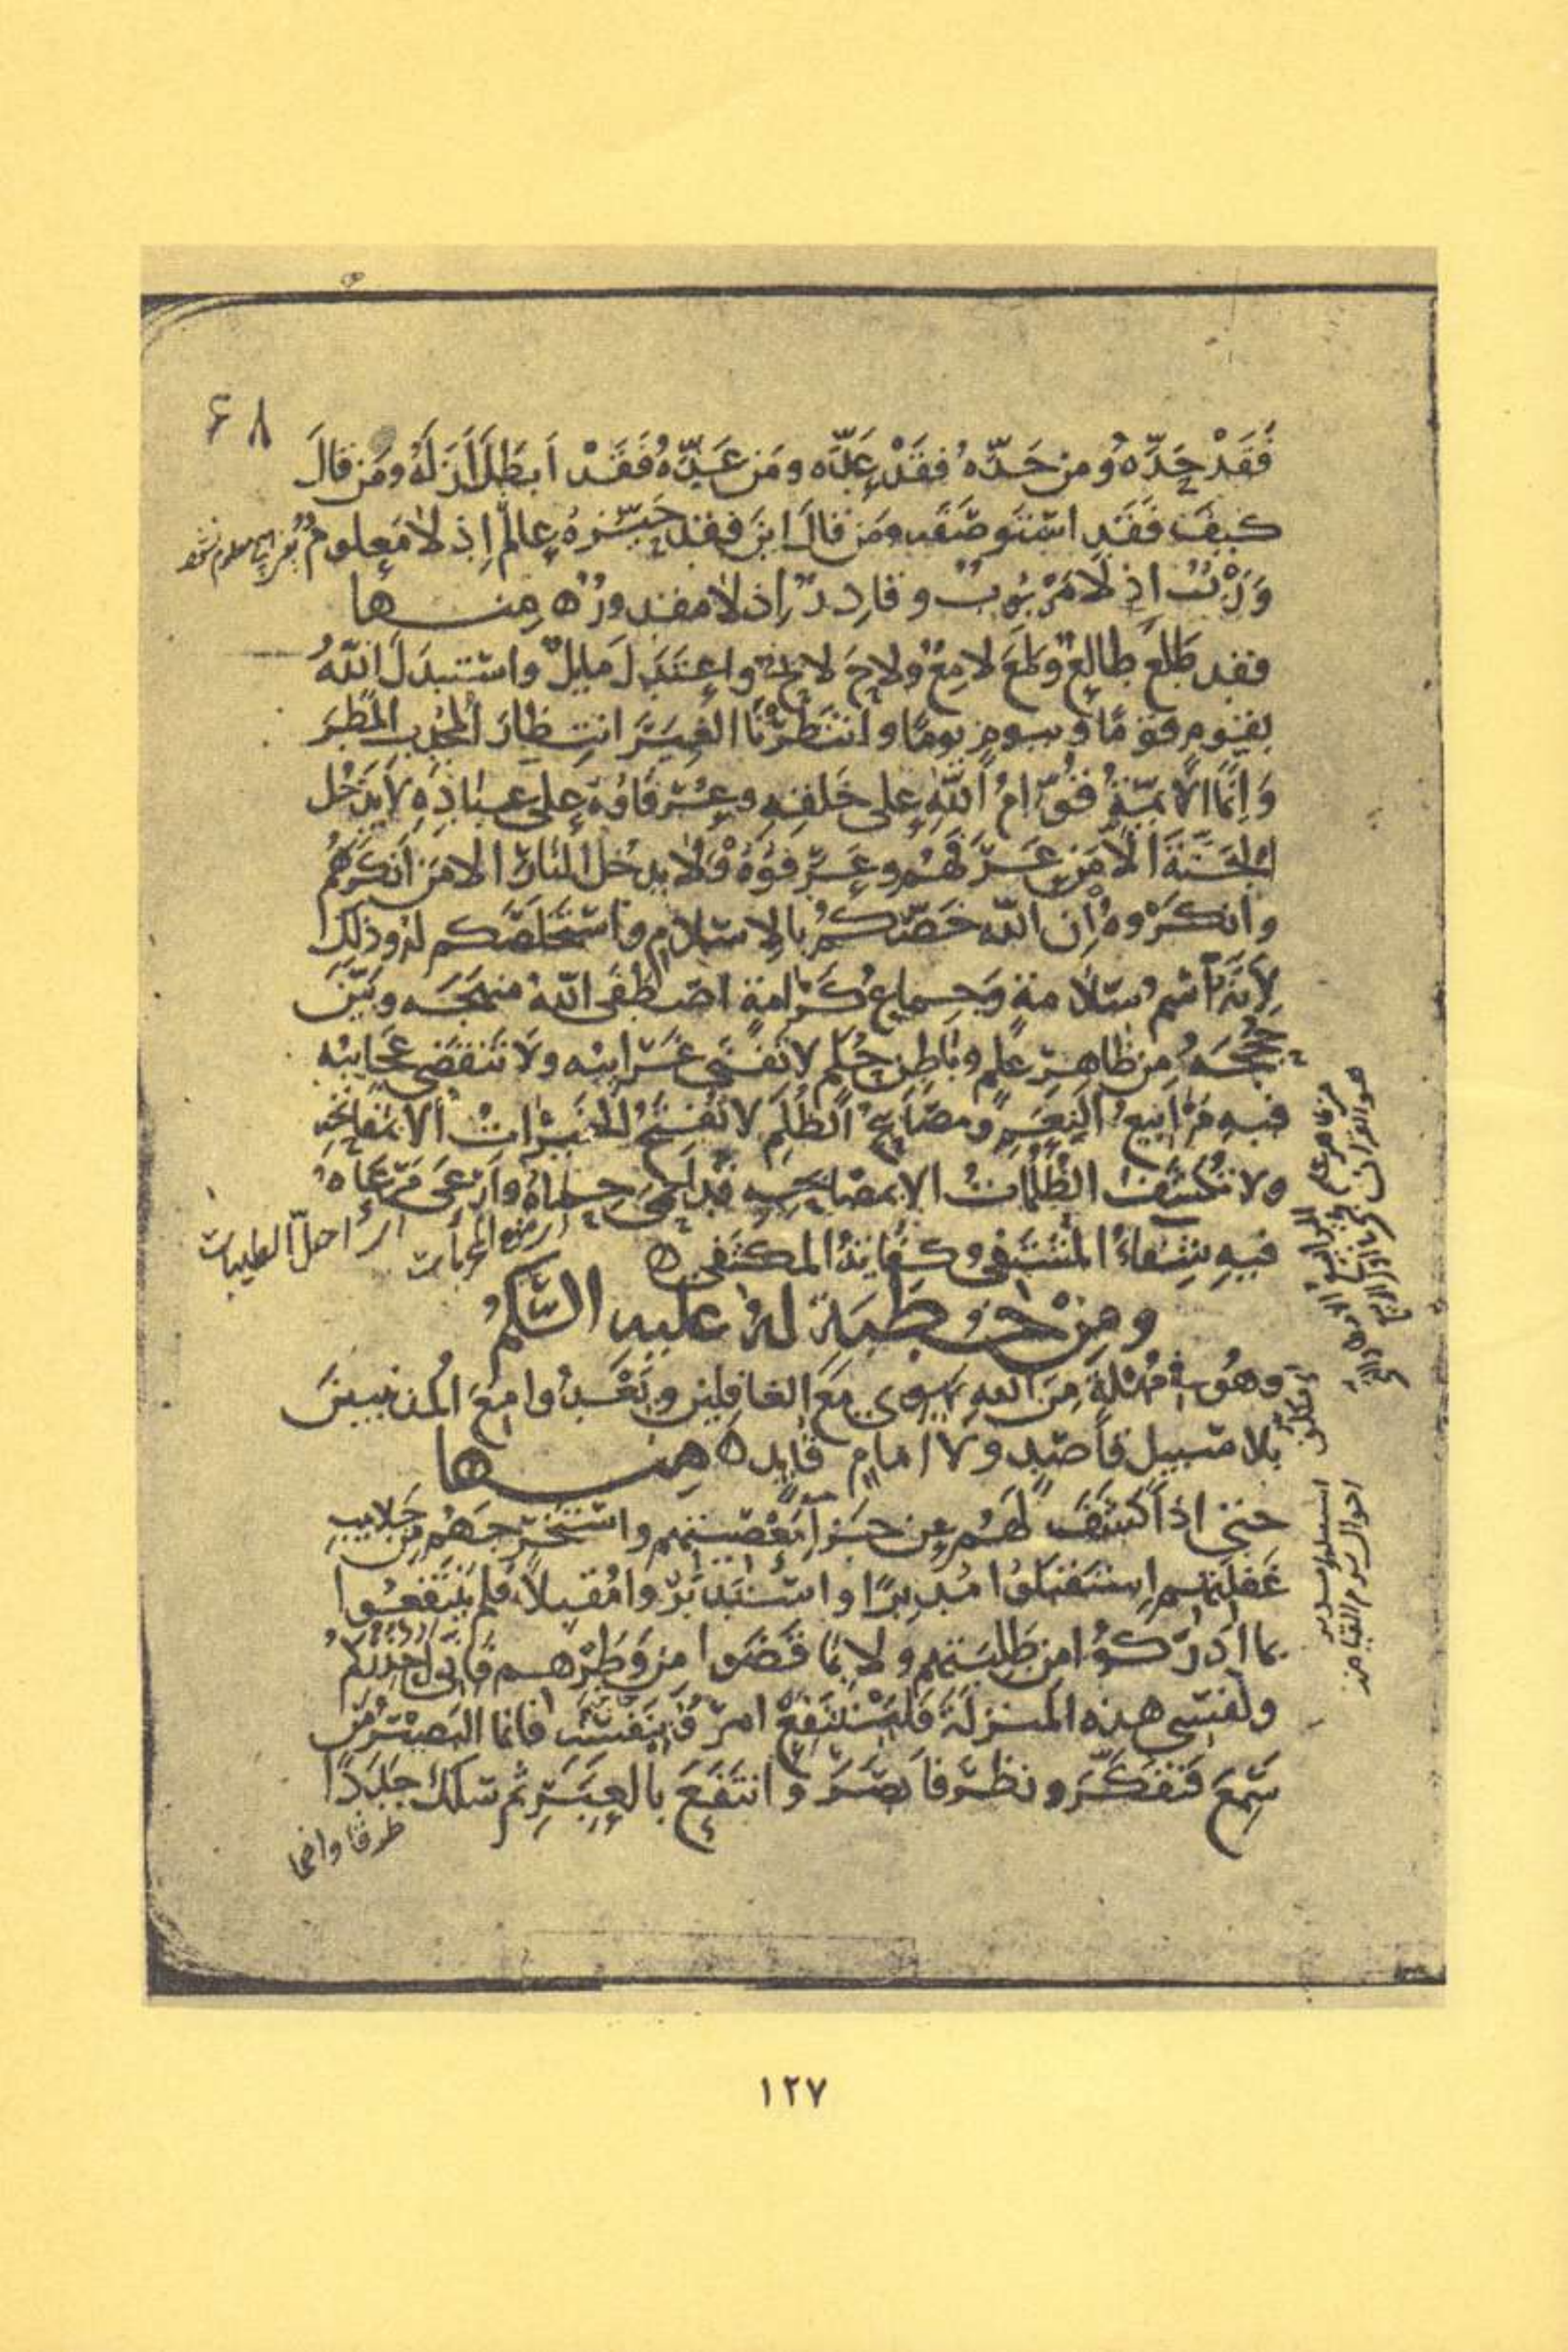 ۶۸
فَقَدْ حَدَّهُ وَمَن حَدَّهُ فَقَدْ عَدَّه وَمَن عَدَّهُ فَقَدْ اَبطَلَ اَزَلَهُ وَمَن قالَ
كيفَ فَقَدِ استَوصَفَه وَمَن قالَ اينَ فقد حَيَّزهُ عالمٌ اِذ لا مَعلومٌ
وَرَبٌّ اِذ لا مَرْبُوبٌ وقادِرٌ اِذ لا مقدورٌ ه مِنها
فقد طَلَعَ طالِعٌ ولَمَعَ لامِعٌ ولاحَ لايحٌ واعتَدَلَ مايلٌ واستبدَلَ اللّهُ
بقومٍ قومًا وبيومٍ يومًا وانتَظَرْنَا الغِيَرَ انتِظارَ المُجْدِبِ المَطَرَ
وَاِنَّما الائِمَّةُ قُوّامُ اللّهِ على خَلقِهِ وعُرَفاؤهُ على عِبادِهِ لا يَدخُل
الجَنَّةَ اِلّا مَن عَرَفَهُم وعَرَفوهُ ولا يدخُل النارَ الا مَن اَنكَرَهُم
وانكَرُوهُ اِن اللّه خَصَّكُم بالاِسلامِ واستَخلَصَكم لهُ وذلك
لاَنَّهُ اسمُ سَلامةٍ وَجِماعُ كَرامةٍ اصطَفَى اللّهُ منهَجَه وبَيَّنَ
حُجَجَهُ مِن ظاهِرِ عِلمٍ وباطِنِ حُكمٍ لا تَفنَى غَرايبُه ولا تَنقَضى عجايبُه
فيهِ مَرابيعُ النِعَمِ ومصَابيحُ الظُلَمِ لا تُفتَحُ الخَيراتُ الا بمَفاتحِهِ
ولا تُكشَفُ الظُلُماتُ الا بمصابيحِهِ قد اَحمَى حِماهُ واَرعَى مَرعاهُ
فيهِ شِفاءُ المُشتَفى وكِفايةُ المكتَفى ه
احلّ الطيبات
ومِنْ خُطبَةٍ لهُ عليهِ السَّلَمُ
وهُوَ فى مُهْلَةٍ مِنَ اللّهِ يهوى مَعَ الغافِلينَ ويَغْدُوا مَعَ المُذنبينَ
بلا سَبيلٍ قاصِدٍ ولا اِمامٍ قايدٍ ه مِنها
حتى اِذا كَشَفَ لهُم عن جَزاءِ مَعْصِيتهِم واستَخرَجَهُم من جَلابيبِ
غَفلَتِهِم اِستَقبَلُوا مُدبِرًا واستَدبَرُوا مُقبِلًا فلم يَنتَفِعُوا
بما اَدرَكُوا من طَلِبَتِهم ولا بما قَضَوا مِن وَطَرِهم فاِنى اُحَذّرُكُم
ونَفسى هذه المَنزِلَةَ فَليَنتَفِعْ امرؤٌ بنَفسِه فانما البَصيرُ مَن
سَمِعَ فَتَفَكَّرَ ونظَرَ فاَبصَرَ وانتَفَعَ بالعِبَرِ ثم سَلكَ جَدَدًا
طرقا واضحا
١٢٧